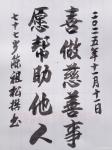 二〇二五年十一月十一日
喜做慈善事
愿帮助他人
七十七岁陈祖松撰书